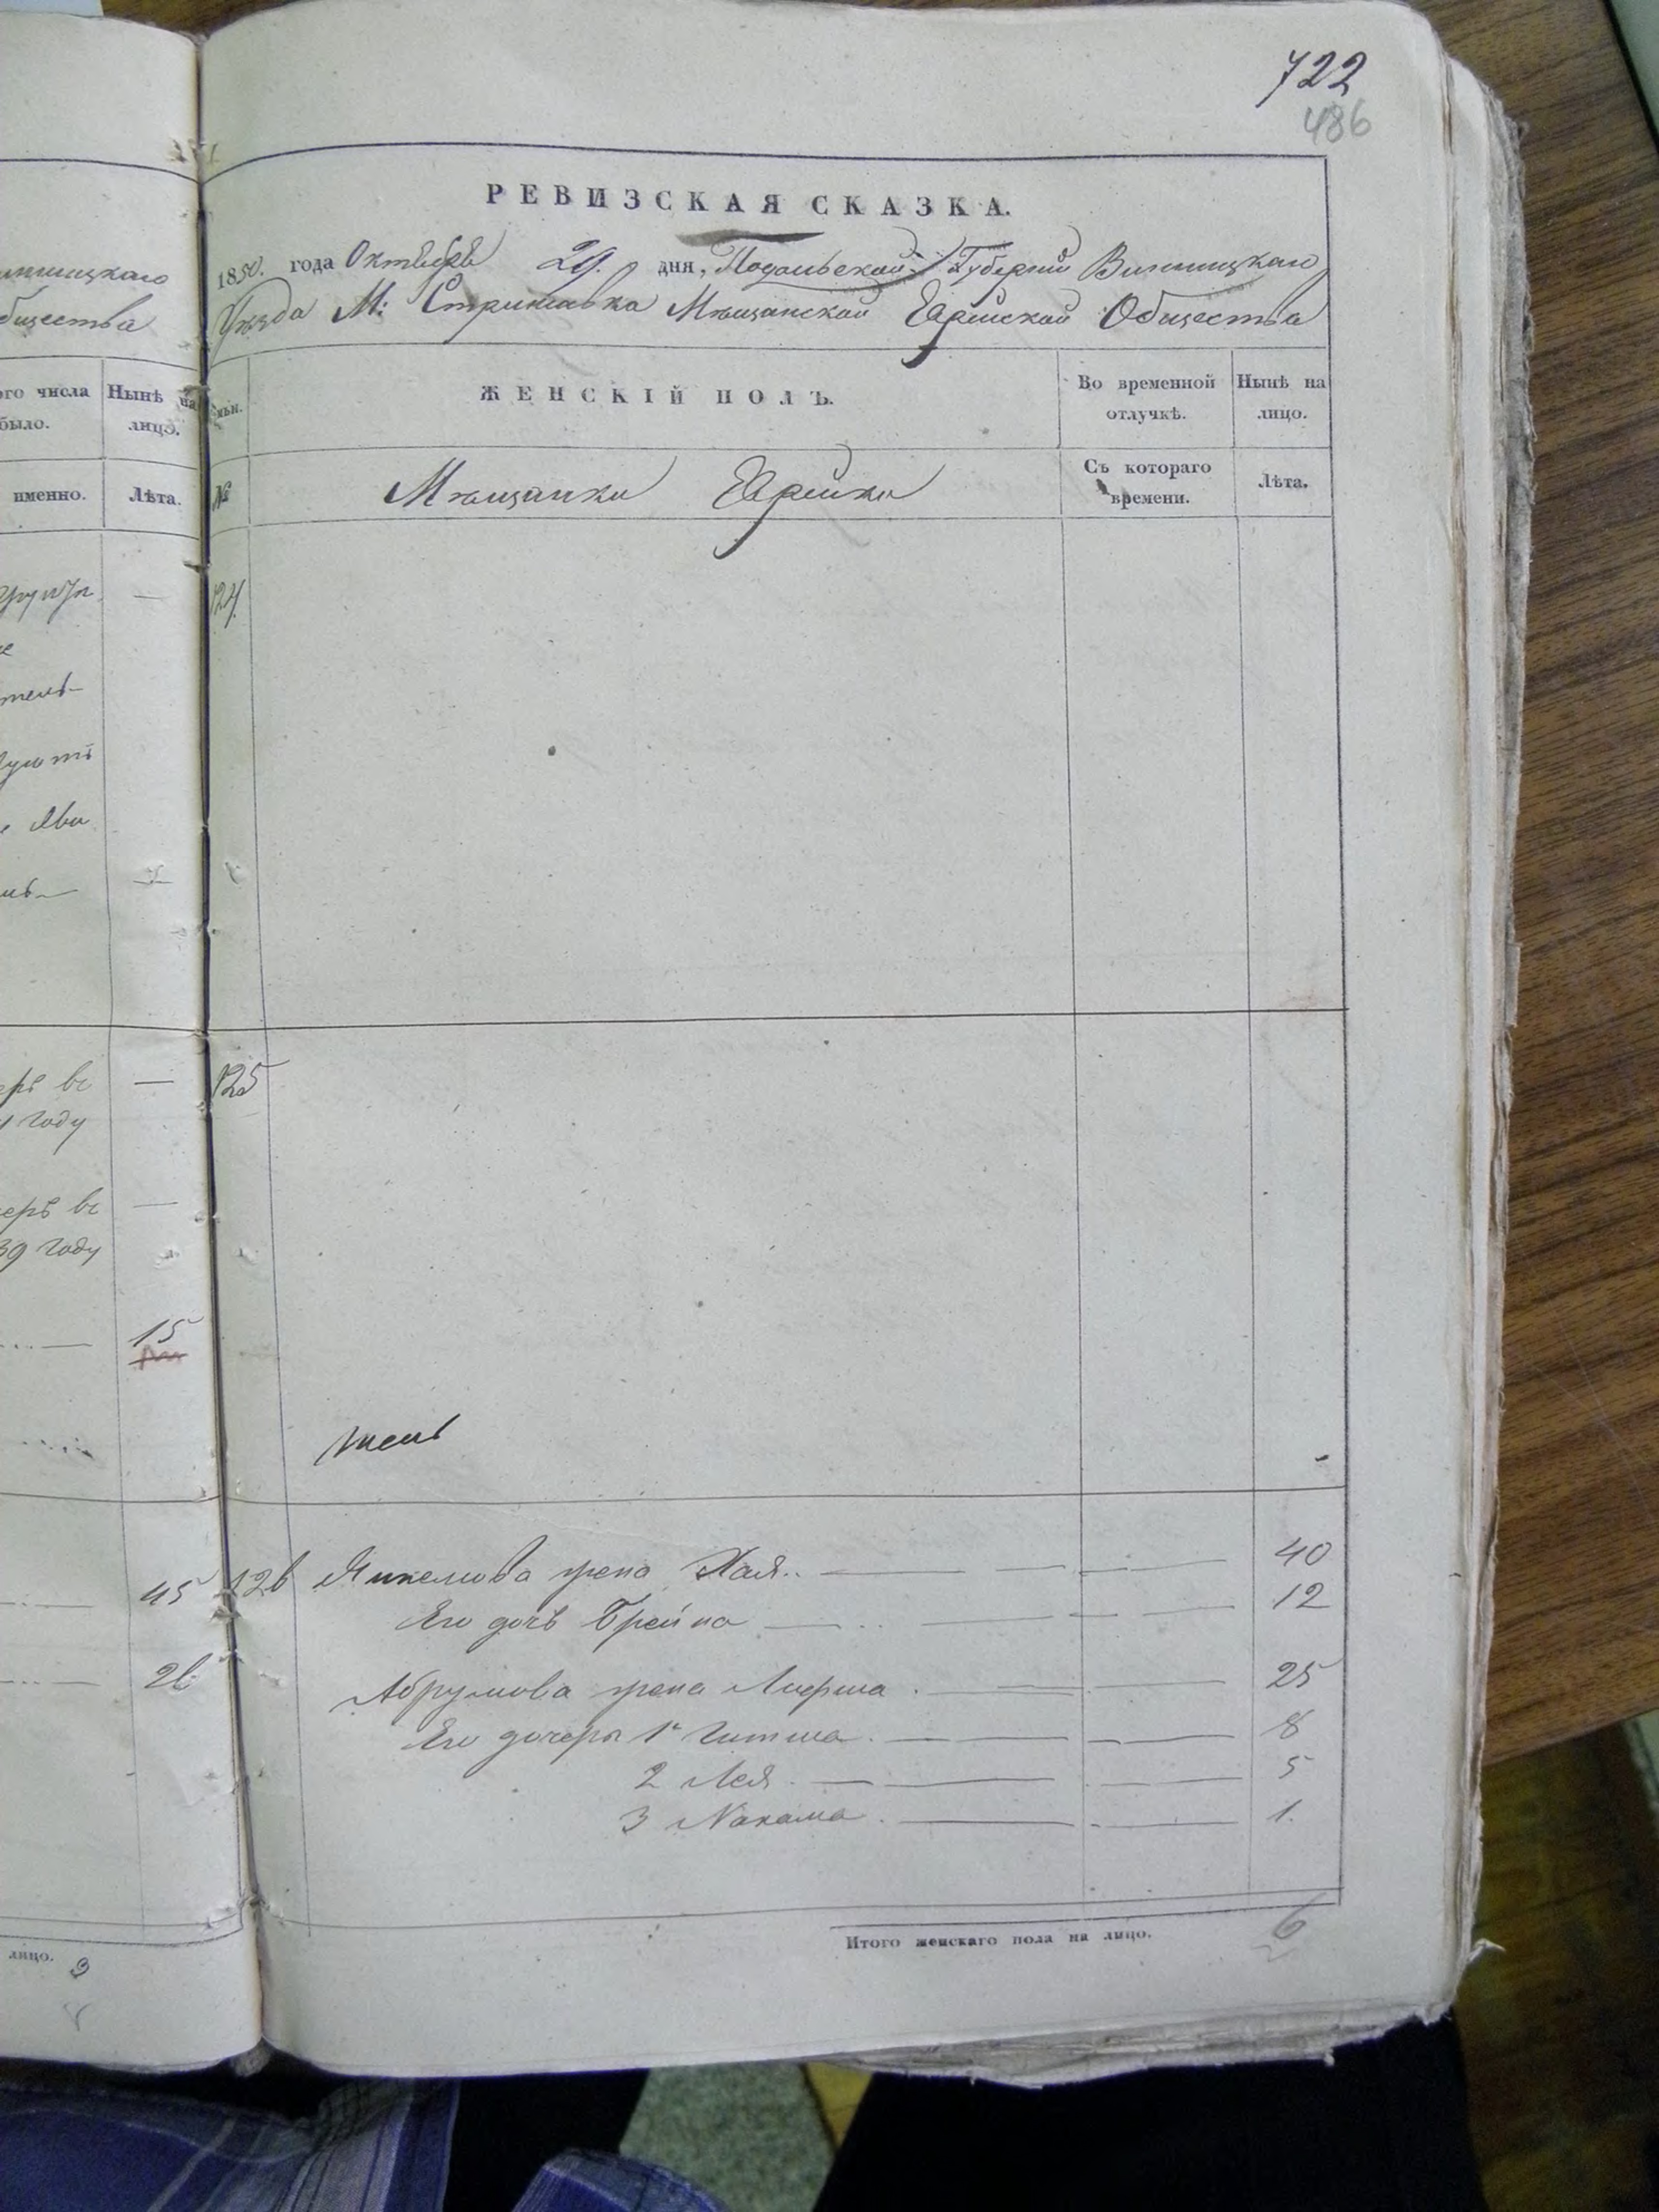 722
486
РЕВИЗСКАЯ СКАЗКА.
1850. года Октября 29. дня, Подольской Губернии Винницкаго
Уѣзда М: Стрижавка Мѣщанской Еврейской Общества
ннницкаго
бщества
ого числа было. Нынѣ на лицо.
именно. Лѣта.
ЖЕНСКІЙ ПОЛЪ.
Во временной отлучкѣ. Нынѣ на лицо.
№ Мѣщанки Еврейки
Съ котораго времени. Лѣта.
— 124.
тель
ерѣ вс — 125
году
ерѣ вс —
39 году
15
45 126 Янкелиова жена Хая. 40
Его дочь Брейна 12
26 Абрумова жена 25
Его дочери 1я 8
2 Лея. 5
3 Нахама. 1.
лицо. 3
Итого женскаго пола на лицо. 6